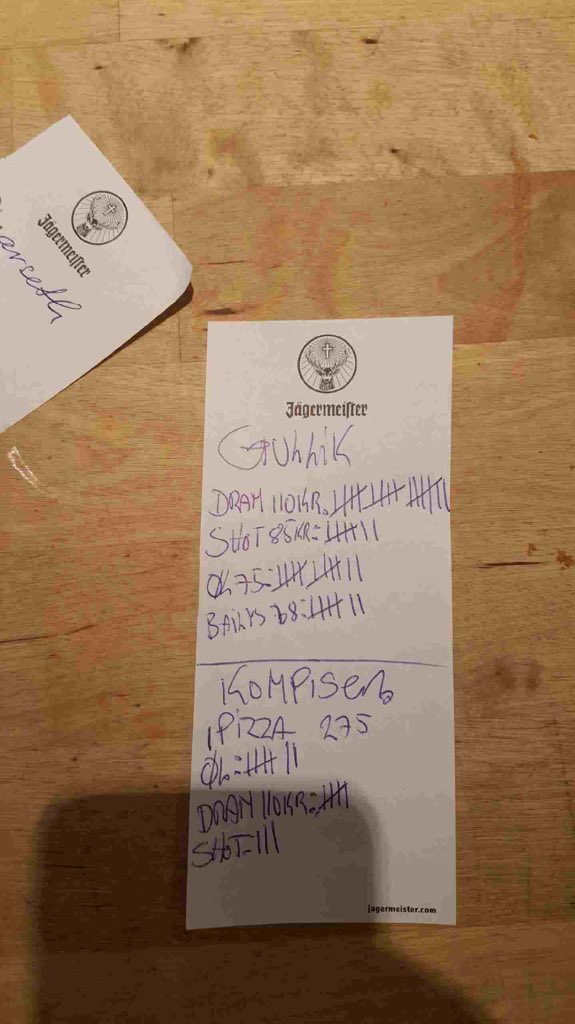 Jägermeister
Jägermeister
GULLIK
DRAM 110KR. 𝍸 𝍸 𝍸 ||
SHOT 85KR= 𝍸 ||
ØL 75= 𝍸 𝍸 ||
BAILYS 78= 𝍸 ||
KOMPISER
1 PIZZA 275
ØL= 𝍸 ||
DRAM 110KR= 𝍸
SHOT= |||
jagermeister.com